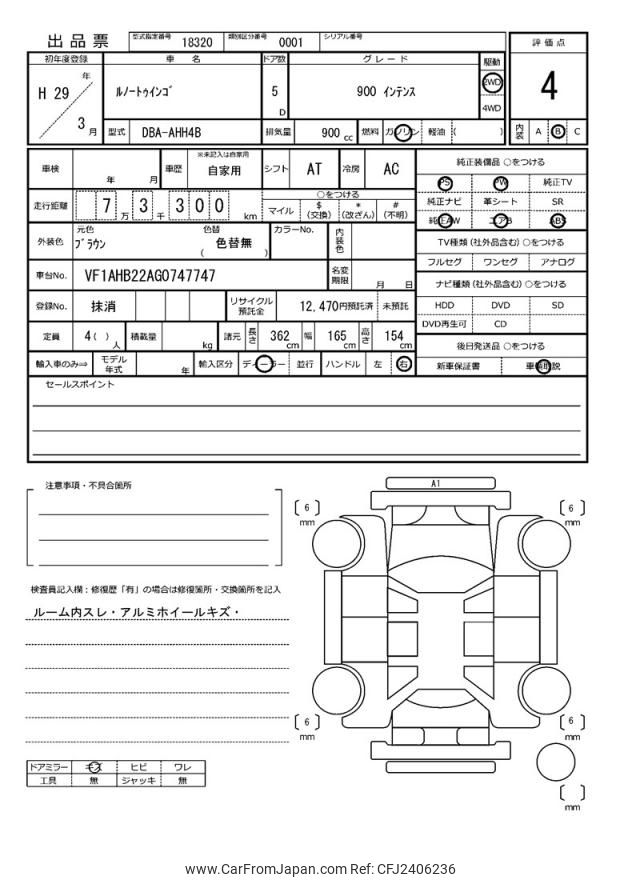 出品票 型式指定番号 18320 類別区分番号 0001 シリアル番号
評価点
初年度登録 車名 ドア数 グレード 駆動
H 29 年 3 月 ルノートゥインゴ 5 D 900 インテンス 2WD 4WD
4
型式 DBA-AHH4B 排気量 900 cc 燃料 ガソリン 軽油 ( )
内装 A B C
車検 年 月 車歴 ※未記入は自家用 自家用 シフト AT 冷房 AC
純正装備品 ○をつける
PS PW 純正TV
純正ナビ 革シート SR
純正AW エアB ABS
走行距離 7 万 3 千 3 0 0 km
○をつける
マイル $ (交換) * (改ざん) # (不明)
外装色 元色 ブラウン 色替 ( 色替無 ) カラーNo. 内装色
TV種類 (社外品含む) ○をつける
フルセグ ワンセグ アナログ
車台No. VF1AHB22AG0747747 名変期限 月 日
ナビ種類 (社外品含む) ○をつける
HDD DVD SD
DVD再生可 CD
登録No. 抹消 リサイクル預託金 12,470円預託済 未預託
定員 4( ) 人 積載量 kg 諸元 長さ 362 cm 幅 165 cm 高さ 154 cm
後日発送品 ○をつける
新車保証書 車輌取説
輸入車のみ⇒ モデル年式 年 輸入区分 ディーラー 並行 ハンドル 左 右
セールスポイント
注意事項・不具合箇所
A1
[ 6 ] mm
[ 6 ] mm
検査員記入欄：修復歴「有」の場合は修復箇所・交換箇所を記入
ルーム内スレ・アルミホイールキズ・
[ 6 ] mm
[ 6 ] mm
ドアミラー キズ ヒビ ワレ
工具 無 ジャッキ 無
[ ] mm
www.CarFromJapan.com Ref: CFJ2406236